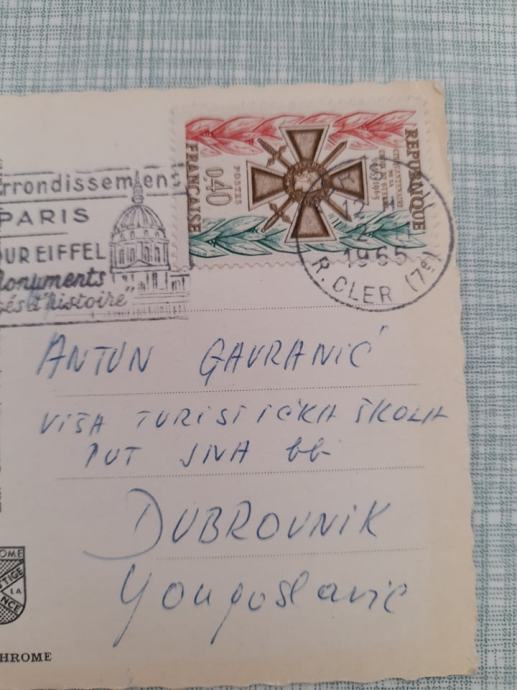 rrondissement
PARIS
OUR EIFFEL
Monuments
és d'histoire"
REPUBLIQUE
FRANÇAISE
0,40
POSTES
12
1965
R. CLER (7e)
ANTUN GAVRANIĆ
VIŠA TURISTIČKA ŠKOLA
PUT JNA bb
DUBROVNIK
Yougoslavie
OME
LA
NCE
HROME